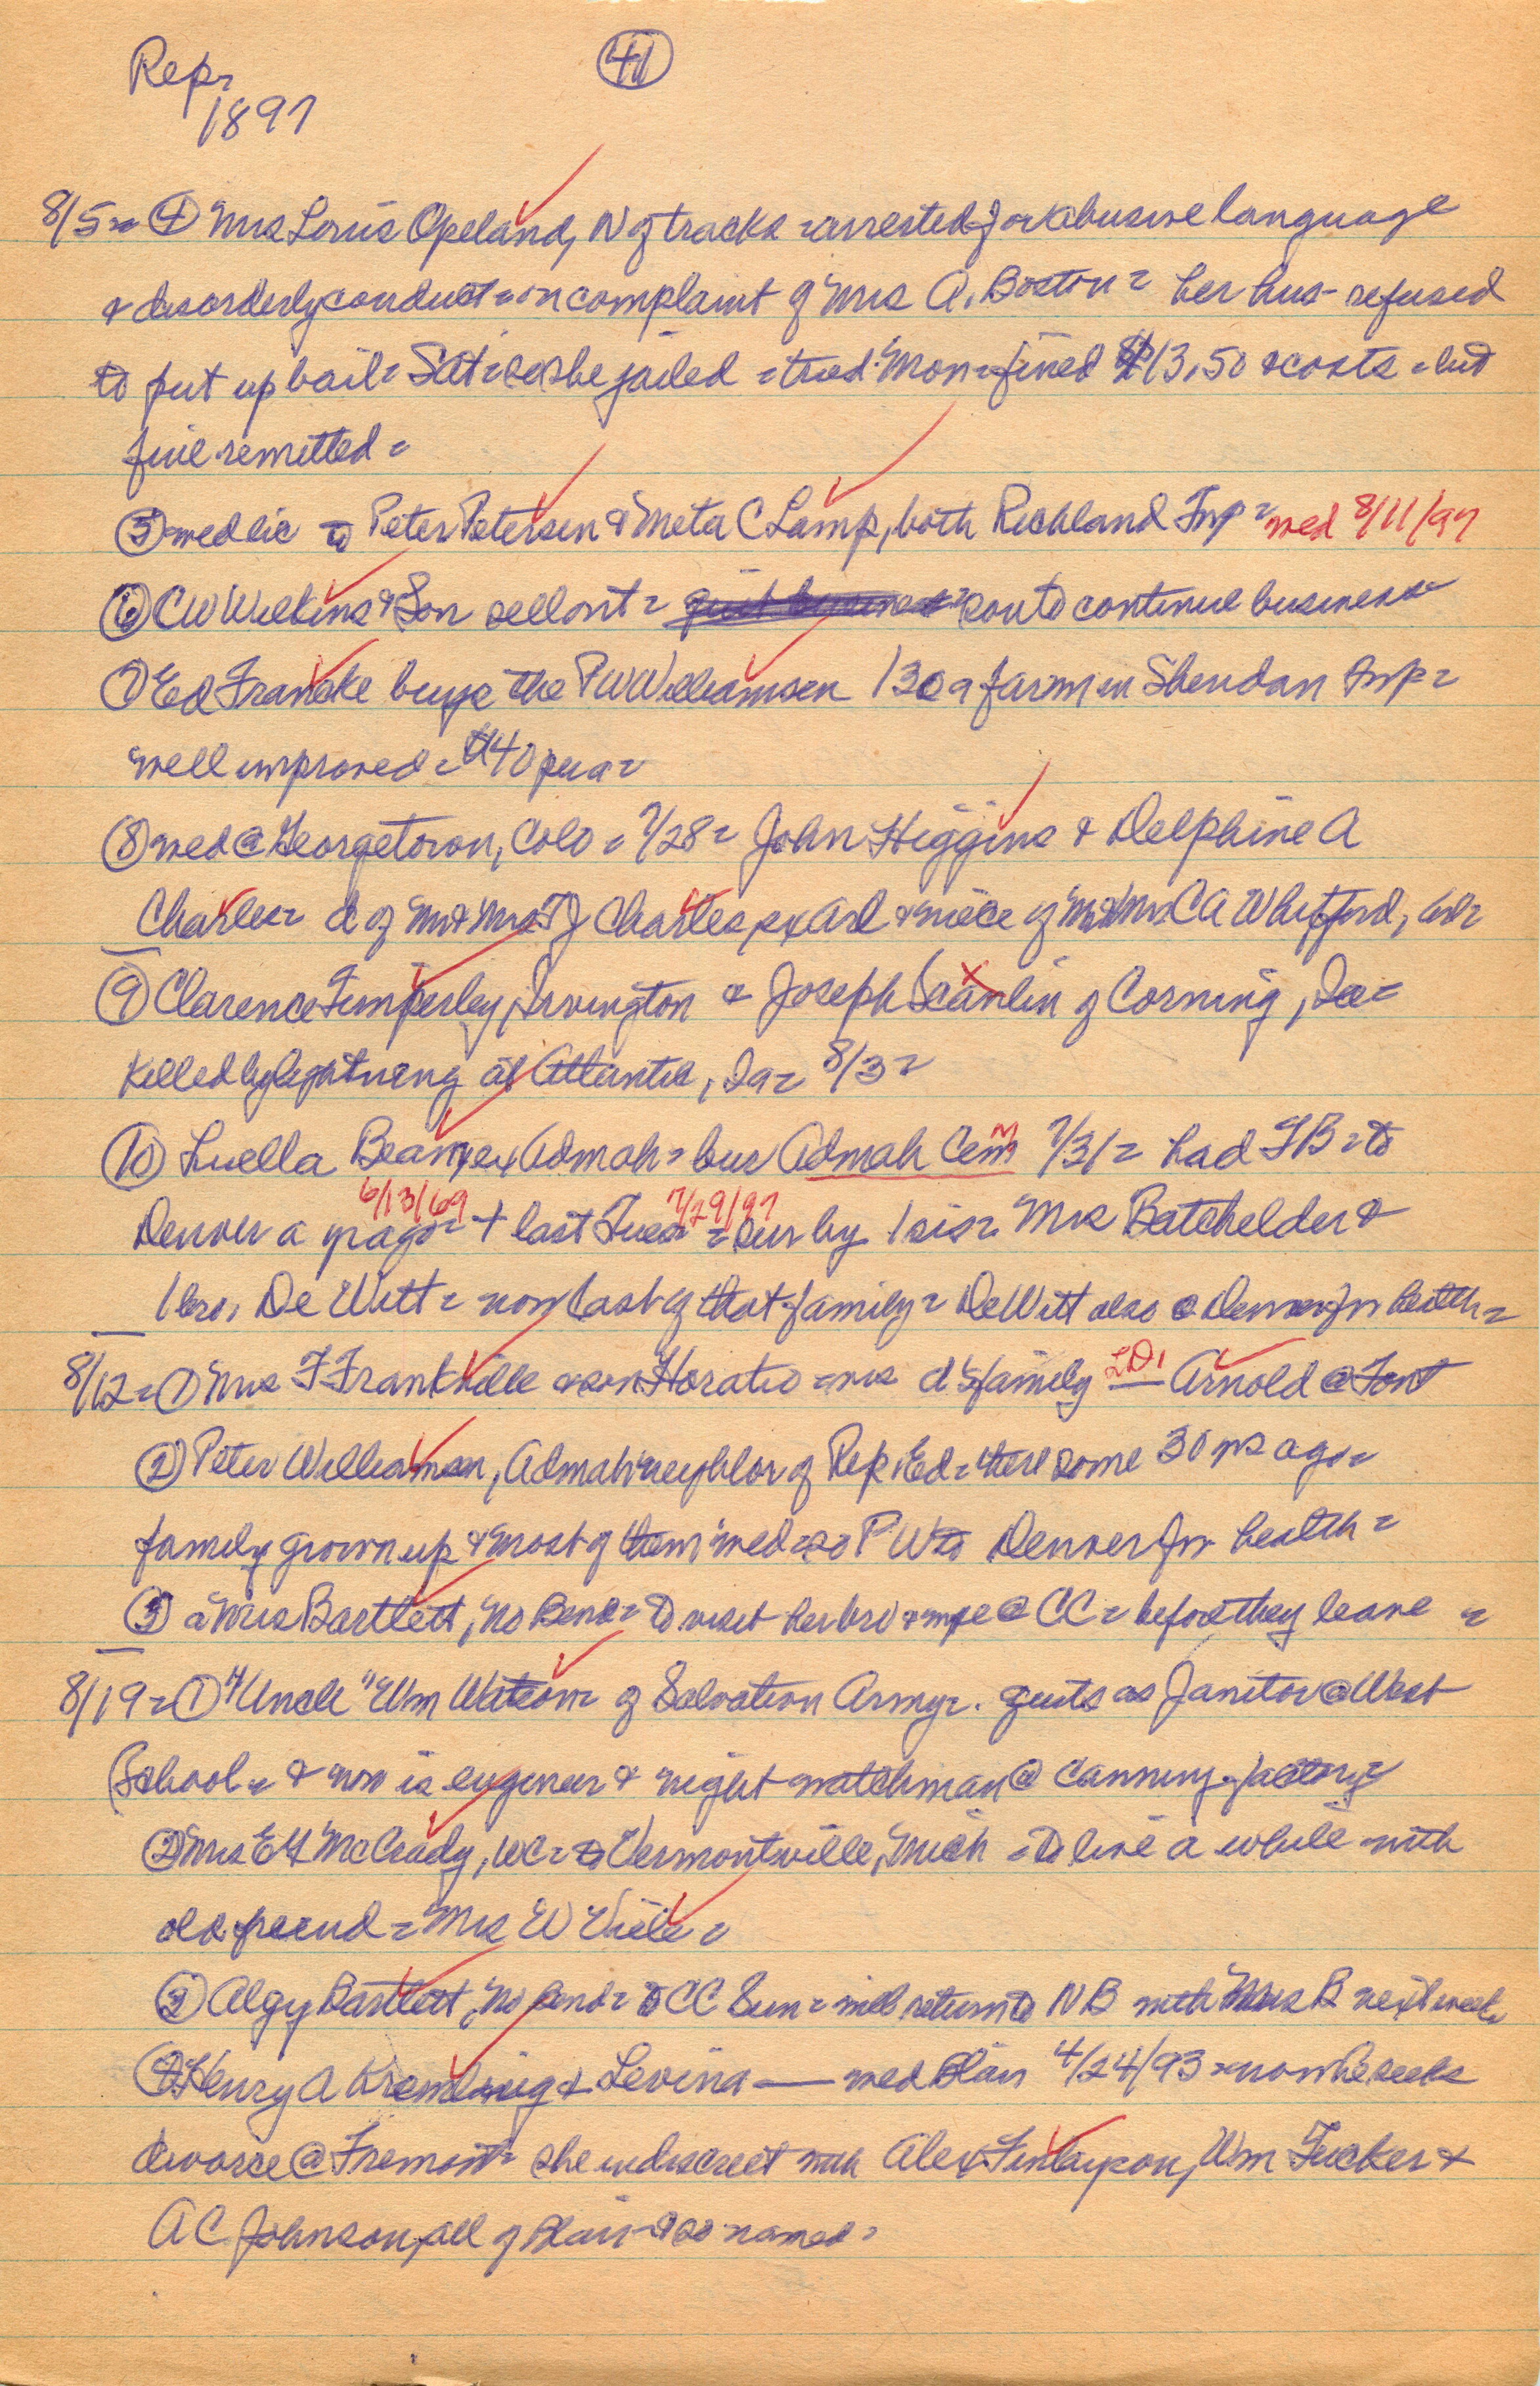 Repr
1897
41
8/5 = ④ Mrs Louis Opeland, N of tracks = arrested for abusive language
& disorderly conduct = on complaint of Mrs A. Boston = her hus - refused
to put up bail = Sat = so she jailed = tried Mon = fined $13.50 & costs = but
fine remitted =
⑤ med lic to Peter Petersen & Meta C Lamp, both Richland Twp = med 8/11/97
⑥ CW Wilkins & Son sell out = son to continue business
⑦ Ed Francke buys the PW Williamsen 130 a farm in Sheridan Twp =
well improved = $40 per a =
⑧ med @ Georgetown, Colo = 7/28 = John Higgins & Delphine A
Charles = d of Mr & Mrs TJ Charles, ex Arl & niece of Mr & Mrs CA Whitford, Arl =
⑨ Clarence Timperley, Irvington & Joseph Scanlin of Corning, Ia =
killed by lightning at Atlantic, Ia = 8/3 =
⑩ Luella Beam, ex Admah = bur Admah Cem 7/31 = had TB = to
6/13/69 7/29/97
Denver a yr ago = + last Tues = sur by 1 sis = Mrs Batchelder &
1 bro, De Witt = now last of that family = DeWitt also @ Denver for health =
8/12 = ① Mrs F Frankville & son Horatio = vis d's family LD, — Arnold @ Font
② Peter Williamsen, Admah neighbor of Rep. Ed = there some 30 yrs ago =
family grown up & most of them med = so PW to Denver for health =
③ a Mrs Bartlett, No Bend = to visit her bro & mge @ CC = before they leave =
8/19 = ① "Uncle" Wm Watson = of Salvation Army = . quits as Janitor @ West
School = & now is engineer & night watchman @ canning factory =
② Mrs EH McCrady, WC = to Vermontville, Mich = to live a while with
old friend = Mrs W Viele =
③ Algy Bartlett, No Bend = to CC Sun = will return to NB with Mrs B next week
④ Henry A Kremling & Levina — med Blair 4/24/93 = now he seeks
divorce @ Fremont = she indiscreet with Alex Finlayson, Wm Tucker &
AC Johnson, all of Blair & so named =